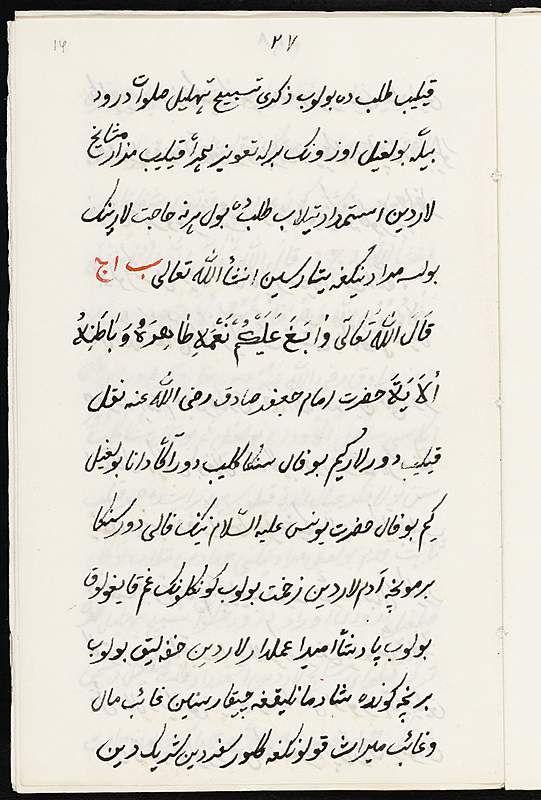 ۲۷
قیلیب طلب ده بولوب ذکری تسبیح تهلیل صلوات درود
بیله بولغیل اوزونک برله تعویذ همراً قیلیب مزار مشایخ
لاردین استمداد تیلاب طلب ده بول هرنه حاجت لارینک
بولسه مرادینکغه یتارسین انشأ الله تعالی ب ا ج
قَالَ اللهُ تَعَالَی وَاسْبَغَ عَلَیْکُمْ نِعَمَهُ ظَاهِرَةً وَبَاطِنَةً
اَلآیَة حضرت امام جعفر صادق رضی الله عنه نقل
قیلیب دورلارکیم بو فال سنکا کلیب دور آکاً دانا بولغیل
کیم بو فال حضرت یونس علیه السّلام ننک فالی دور سنکا
برمونچه آدم لاردین زحمت بولوب کونکلونک غم قایغولوق
بولوب پادشأ امیرا عملدارلاردین خفه لیق بولوب
برنچه کونده شادمانلیقغه چیقارسین غائب مال
وغائب میراث قولونکغه کلور سفردین شریک دین